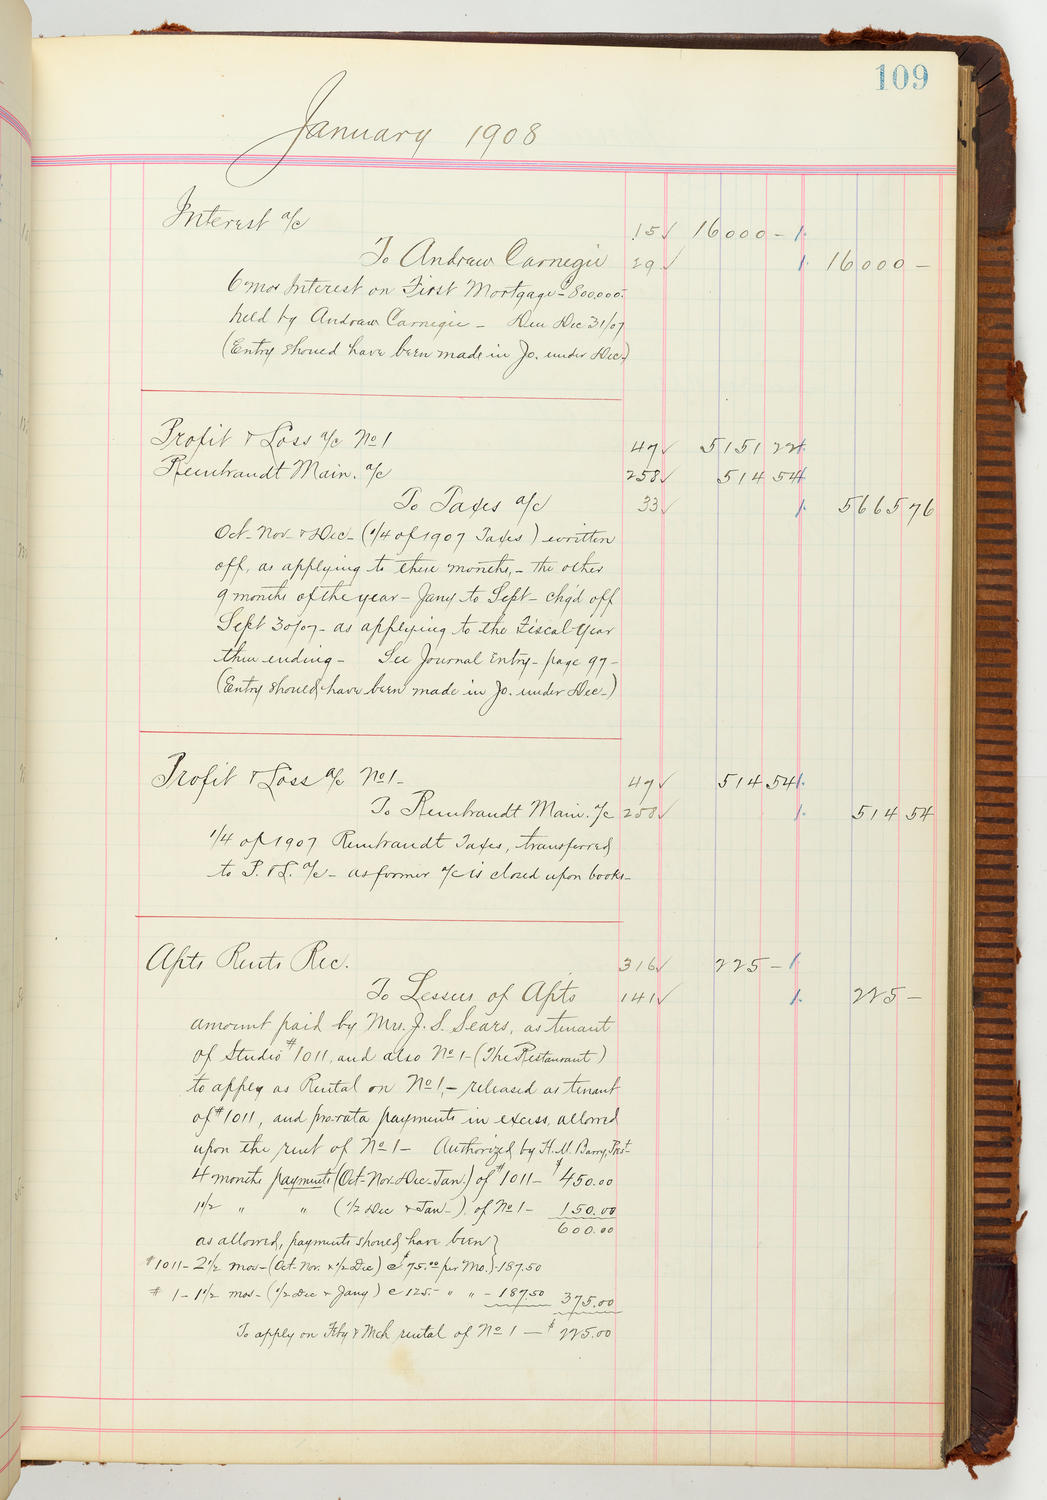 109
January 1908
Interest a/c 15 ✓ 16000 - 1.
To Andrew Carnegie 29 ✓ 1. 16000 -
6 mos Interest on First Mortgage - 800.000.-
held by Andrew Carnegie - Due Dec 31/07
(Entry should have been made in Jo. under Dec.)
Profit & Loss a/c No 1 47 ✓ 5151 22
Rembrandt Main. a/c 258 ✓ 514 54
To Taxes a/c 33 ✓ 1. 5665 76
Oct- Nov- & Dec- (1/4 of 1907 Taxes) written
off, as applying to these months, - the other
9 months of the year - Jany to Sept - chg'd off
Sept 30/07 - as applying to the Fiscal Year
then ending - See Journal Entry - page 97 -
(Entry should have been made in Jo. under Dec-)
Profit & Loss a/c No 1 - 47 ✓ 514 54 1.
To Rembrandt Main. a/c 258 ✓ 1. 514 54
1/4 of 1907 Rembrandt Taxes, transferred
to P. & L. a/c - as former a/c is closed upon books -
Apts Rents Rec. 316 ✓ 225 - 1
To Lessees of Apts 141 ✓ 1. 225 -
amount paid by Mrs. J. S. Sears, as tenant
of Studio #1011, and also No 1 - (The Restaurant)
to apply as Rental on No 1, - released as tenant
of #1011, and pro-rata payments in excess, allowed
upon the rent of No 1 - Authorized by H. M. Barry, Prest-
4 months payments (Oct-Nov-Dec-Jan.) of #1011 - $450.00
1 1/2 " " (1/2 Dec & Jan-) of No 1 - 150.00
600.00
as allowed, payments should have been }
#1011 - 2 1/2 mos - (Oct. Nov. & 1/2 Dec) @ $75.00 per Mo. } - 187.50
# 1 - 1 1/2 mos - (1/2 Dec & Jany) @ 125.- " " - 187.50 375.00
To apply on Feby & Mch rental of No 1 - $225.00